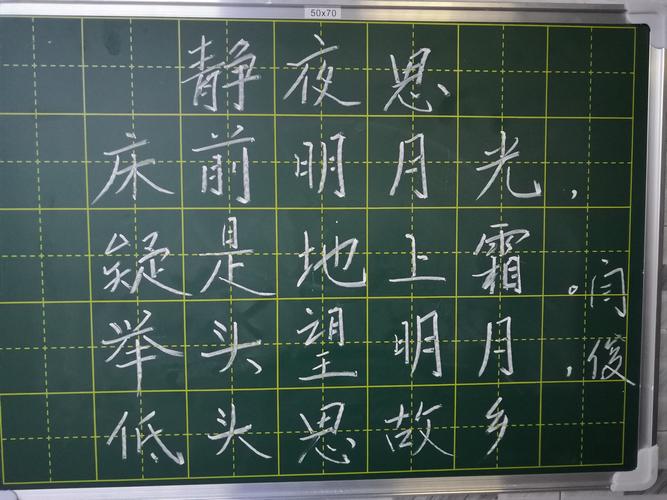 50x70
静夜思
床前明月光，
疑是地上霜。
举头望明月，
低头思故乡
闫俊